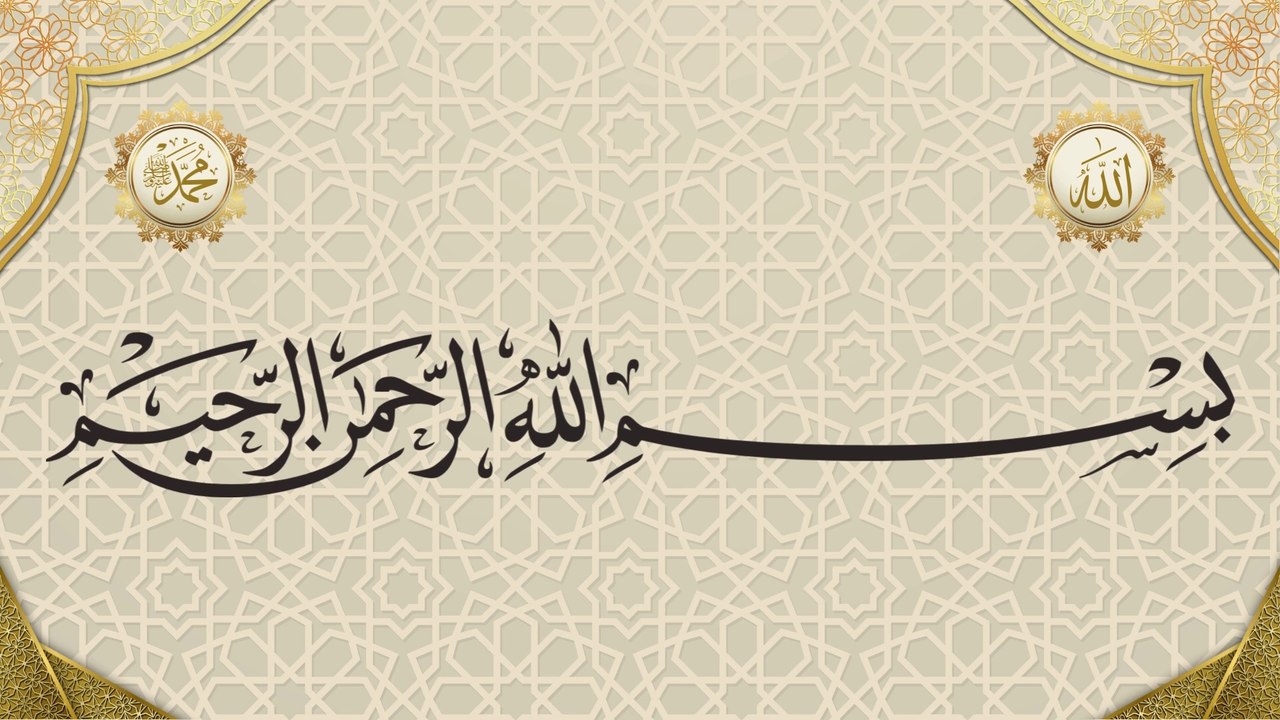 الله
محمد ﷺ
بِسْمِ اللَّهِ الرَّحْمَٰنِ الرَّحِيمِ